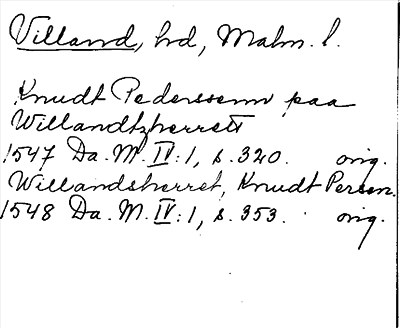 Villand, hd, Malm. l.
Knudt Pederssenn paa
Willandtzherrett
1547 Da. M. IV:1, s. 320. orig.
Willandsherret, Knudt Persen.
1548 Da. M. IV:1, s. 353. orig.